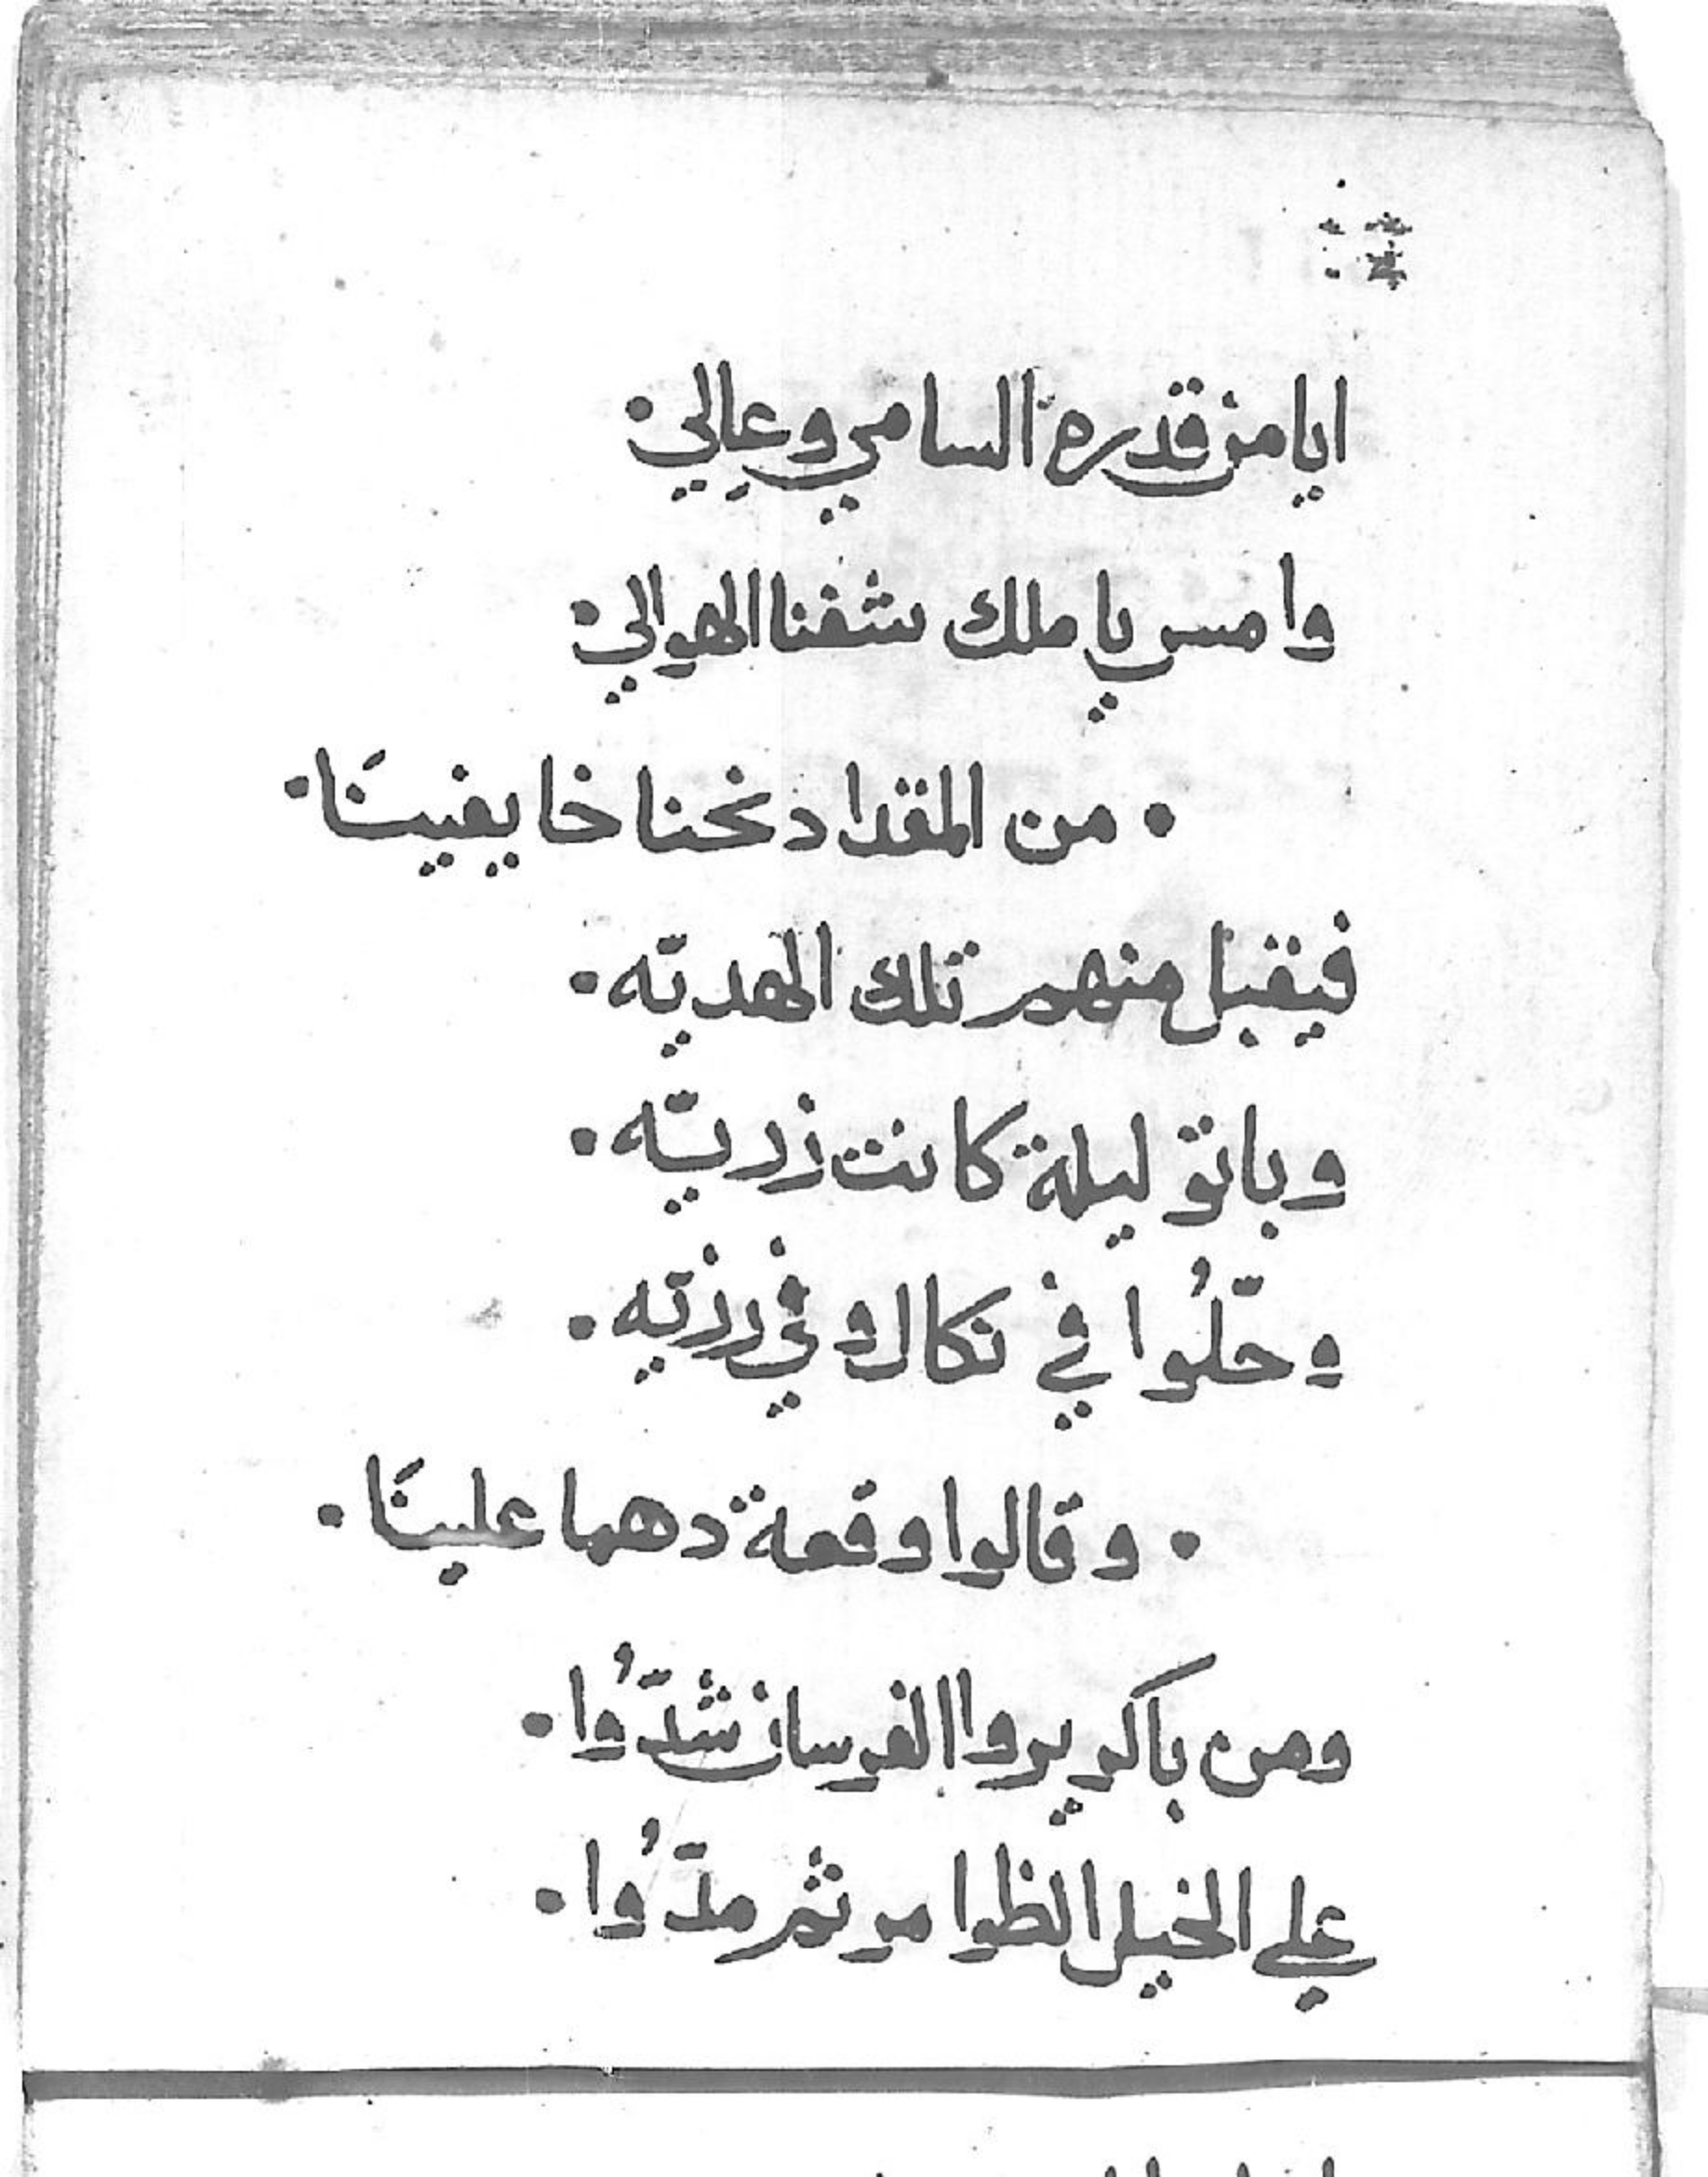 ايا من قدره السامي وعالي
وامس يا ملك شفنا الهوالي
من المقداد نحنا خايفينَا
فيقبل منهم تلك الهديّه
وباتو ليلة كانت زريّه
وحلّوا في نكال وفي رزيّه
وقالوا وقعة دهما علينَا
ومن باكر يروا الفرسان شدّوا
علي الخيل الظوامر ثم مدّوا